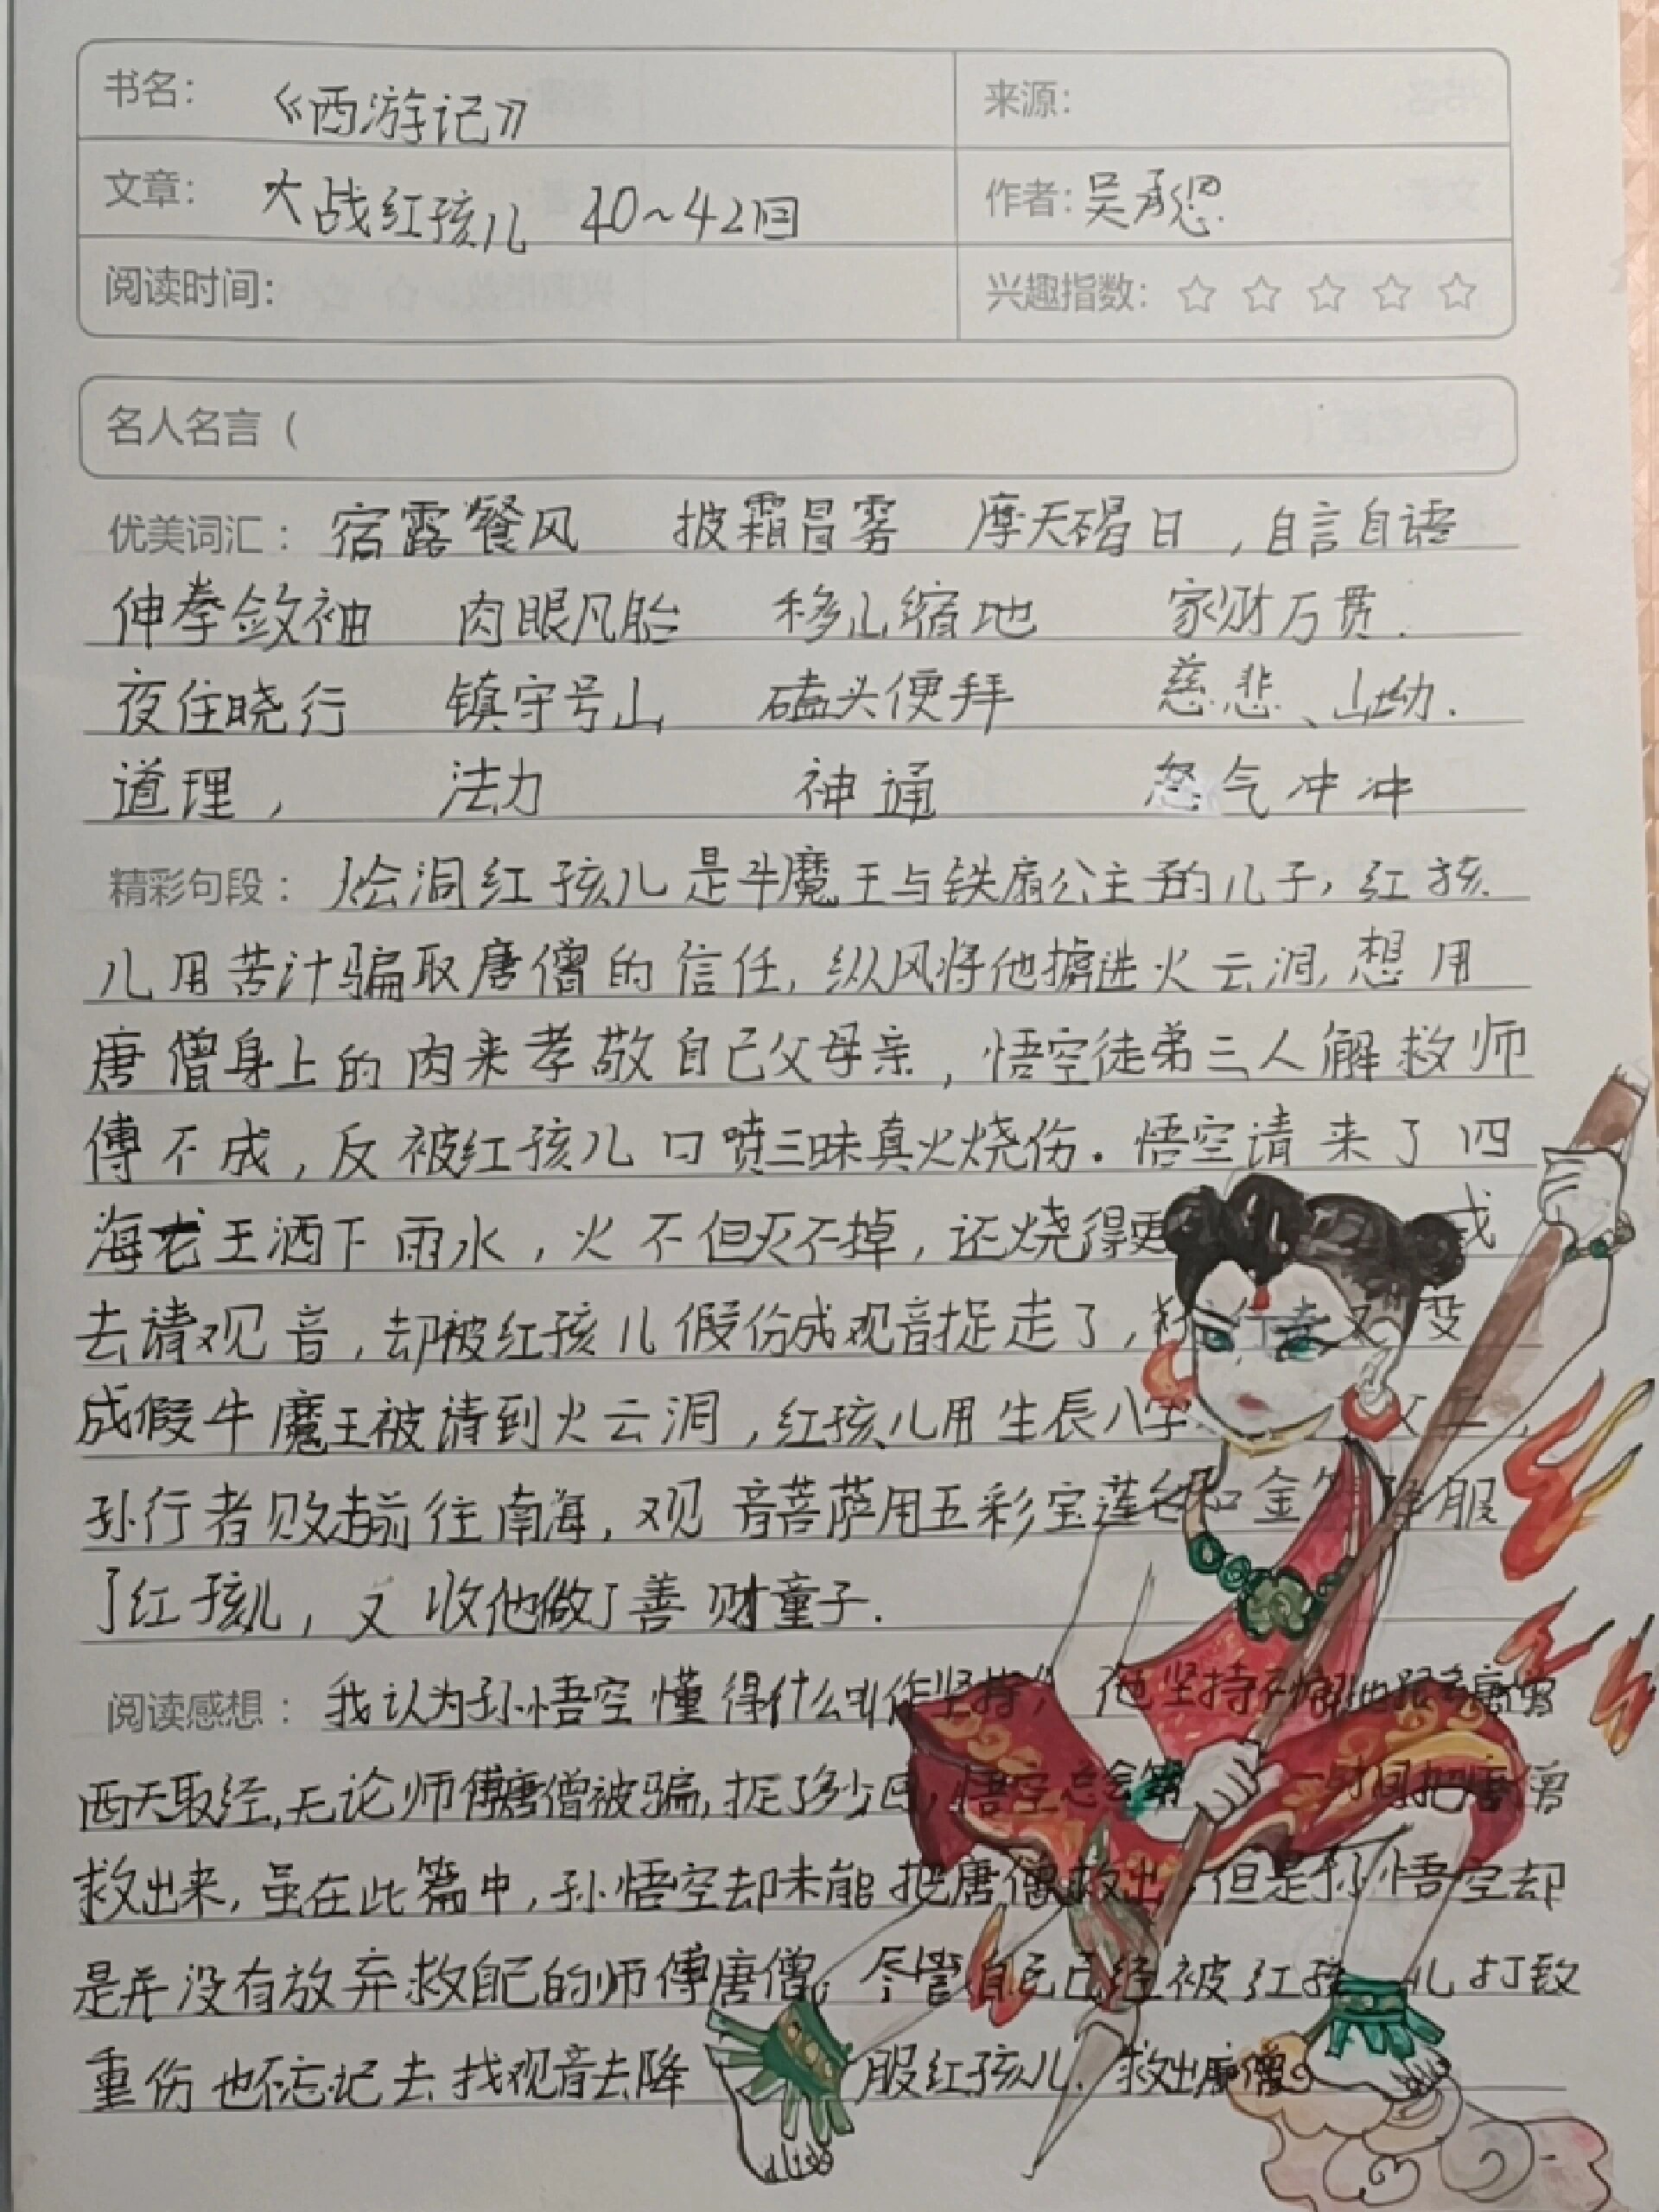 书名： 《西游记》 来源：
文章： 大战红孩儿 40~42回 作者：吴承恩
阅读时间： 兴趣指数：☆ ☆ ☆ ☆ ☆
名人名言（
优美词汇： 宿露餐风 披霜冒雾 摩天碍日，自言自语
伸拳敛袖 肉眼凡胎 移山缩地 家财万贯．
夜住晓行 镇守号山 磕头便拜 慈悲、山坳．
道理， 法力 神通 怒气冲冲
精彩句段： 洞红孩儿是牛魔王与铁扇公主的儿子，红孩
儿用苦计骗取唐僧的信任，纵风将他掳进火云洞，想用
唐僧身上的肉来孝敬自己父母亲，悟空徒弟三人解救师
傅不成，反被红孩儿口喷三昧真火烧伤．悟空请来了四
海龙王洒下雨水，火不但灭不掉，还烧得更 戒
去请观音，却被红孩儿假份成观音捉走了， 行者又变
成假牛魔王被请到火云洞，红孩儿用生辰八字
孙行者败走前往南海，观音菩萨用五彩宝莲台和金 降服
了红孩儿，又收他做了善财童子．
阅读感想： 我认为孙悟空懂得什么叫作坚持， 他坚持不懈地跟着唐僧
西天取经，无论师傅唐僧被骗，捉了多少回，悟空总会第一时间把唐僧
救出来，虽在此篇中，孙悟空却未能把唐僧救出，但是孙悟空却
是并没有放弃救自己的师傅唐僧，尽管自己已经被红孩儿打致
重伤也不忘记去找观音去降服红孩儿．救出唐僧。